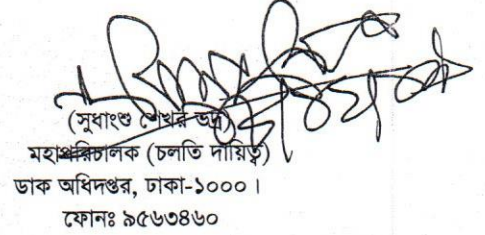 (সুধাংশু শেখর ভদ্র)
মহাপরিচালক (চলতি দায়িত্ব)
ডাক অধিদপ্তর, ঢাকা-১০০০।
ফোনঃ ৯৫৬৩৪৬০